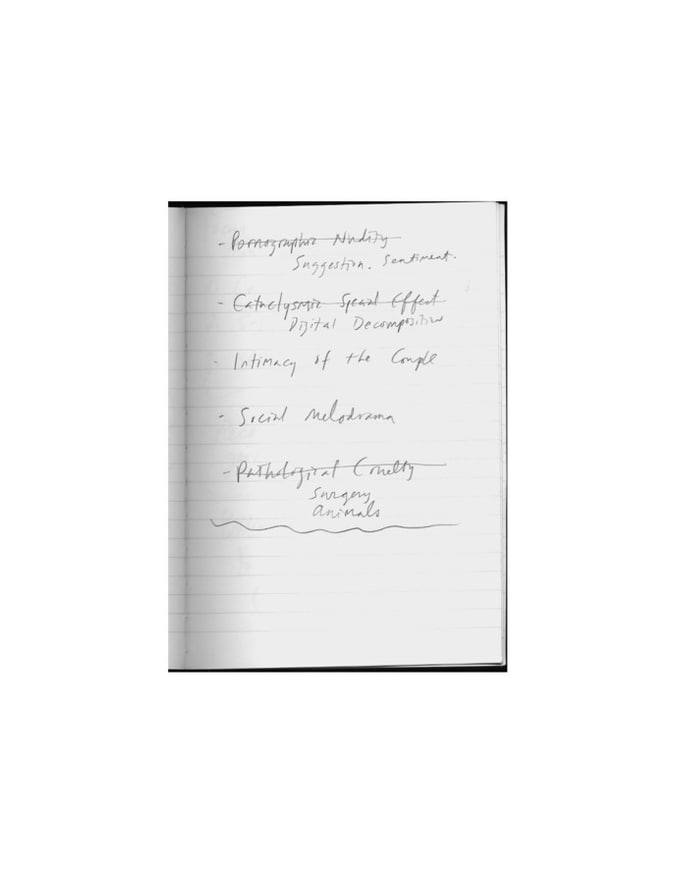 - Pornographic Nudity
Suggestion. Sentiment.
- Cataclysmic Special Effect
Digital Decomposition
- Intimacy of the Couple
- Social Melodrama
- Pathological Cruelty
Surgery
Animals